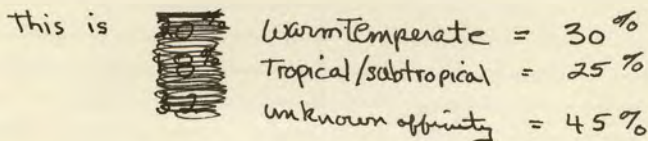 This is Warm Temperate = 30%
Tropical/subtropical = 25%
unknown affinity = 45%